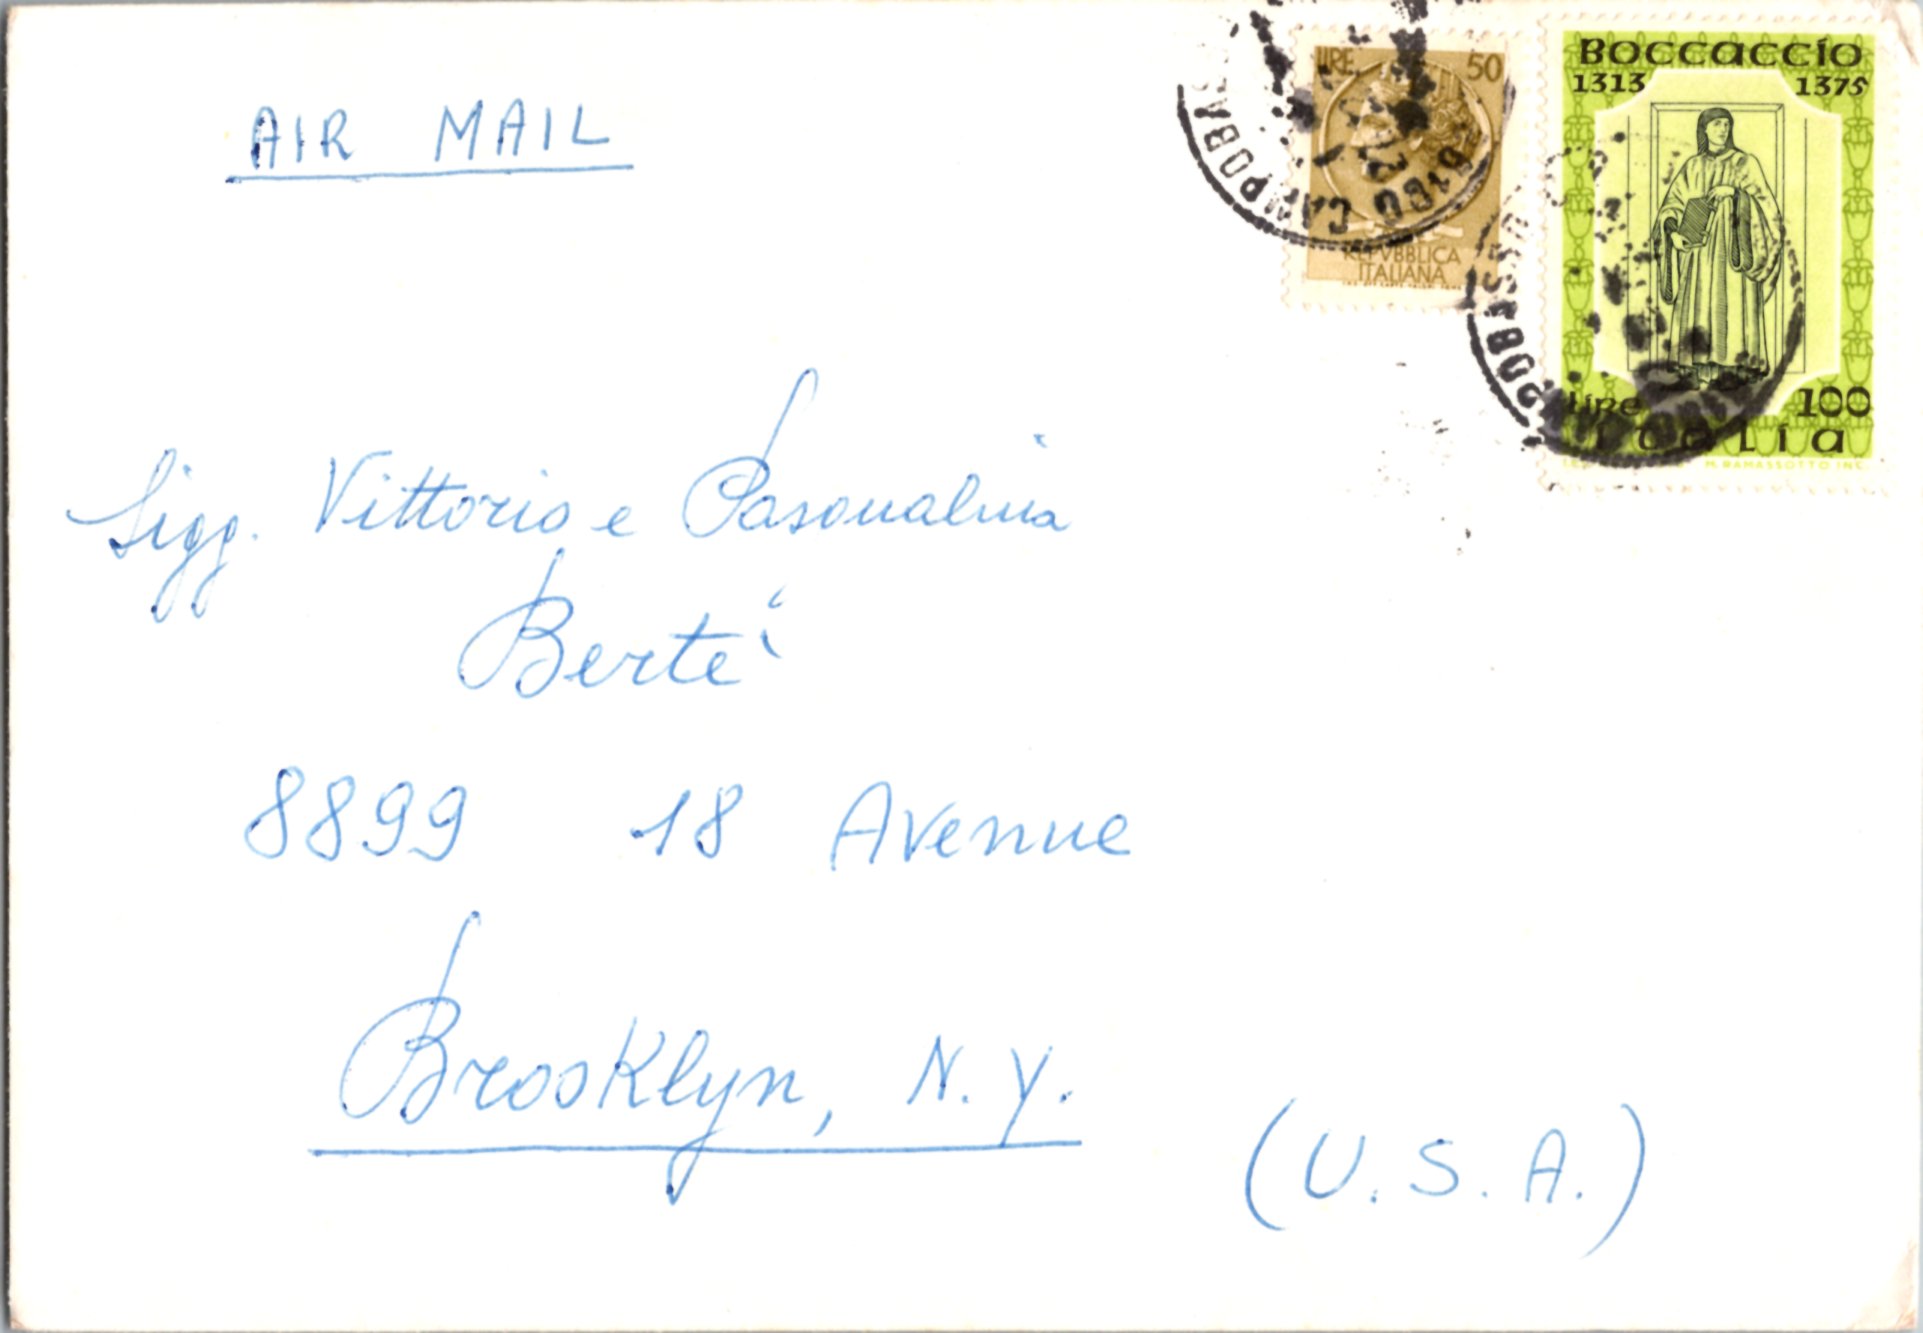 AIR MAIL
LIRE 50
REPVBBLICA
ITALIANA
BOCCACCIO
1313 1375
LIRE 100
ITALIA
M. RAMASSOTTO INC.
86100 CAMPOBASSO
CAMPOBASSO
Sigg. Vittorio e Pasqualina
Berte'
8899 18 Avenue
Brooklyn, N. Y.
(U. S. A.)